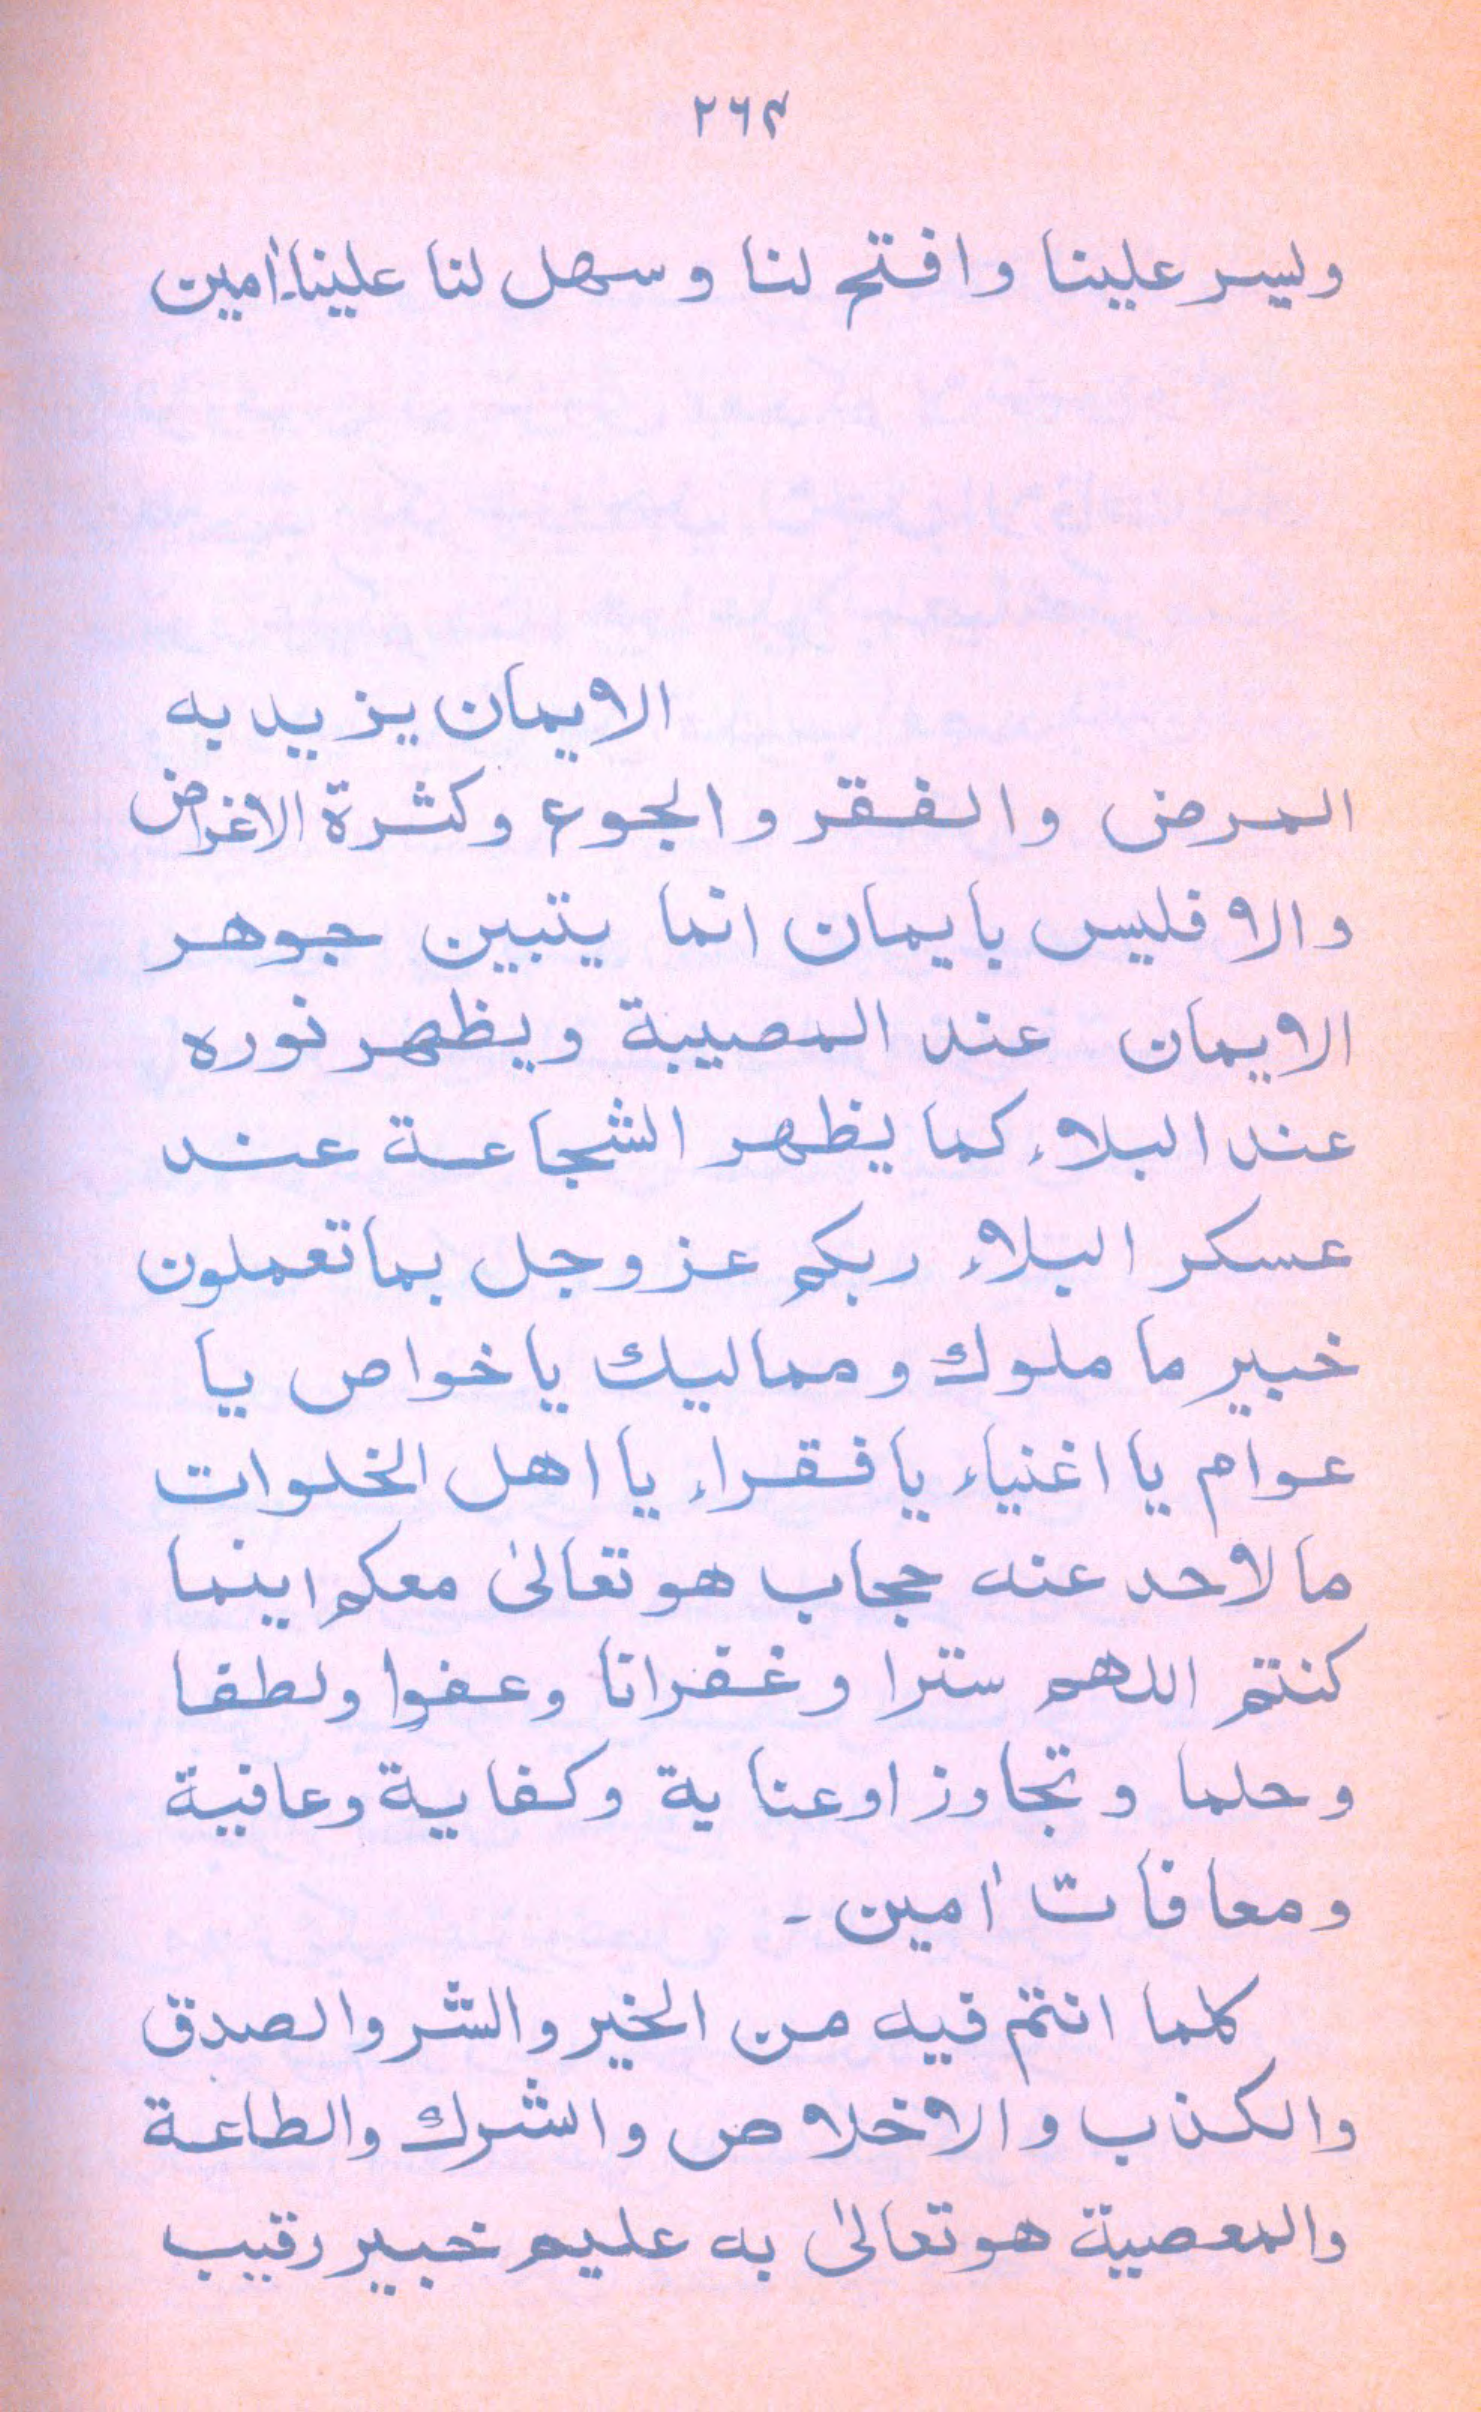 ۲۶۴
ويسر علينا وافتح لنا وسهل لنا علينا اٰمين
الايمان يزيد به
المرض والفقر والجوع وكثرة الاغراض
والا فليس بايمان انما يتبين جوهر
الايمان عند المصيبة ويظهر نوره
عند البلاء كما يظهر الشجاعة عند
عسكر البلاء ربكم عز وجل بما تعملون
خبير ما ملوك ومماليك يا خواص يا
عوام يا اغنياء يا فقراء يا اهل الخلوات
ما لاحد عنه حجاب هو تعالىٰ معكم اينما
كنتم اللهم سترا وغفرانا وعفوا ولطفا
وحلما وتجاوزا وعناية وكفاية وعافية
ومعافات اٰمين۔
كلما انتم فيه من الخير والشر والصدق
والكذب والاخلاص والشرك والطاعة
والمعصية هو تعالىٰ به عليم خبير رقيب